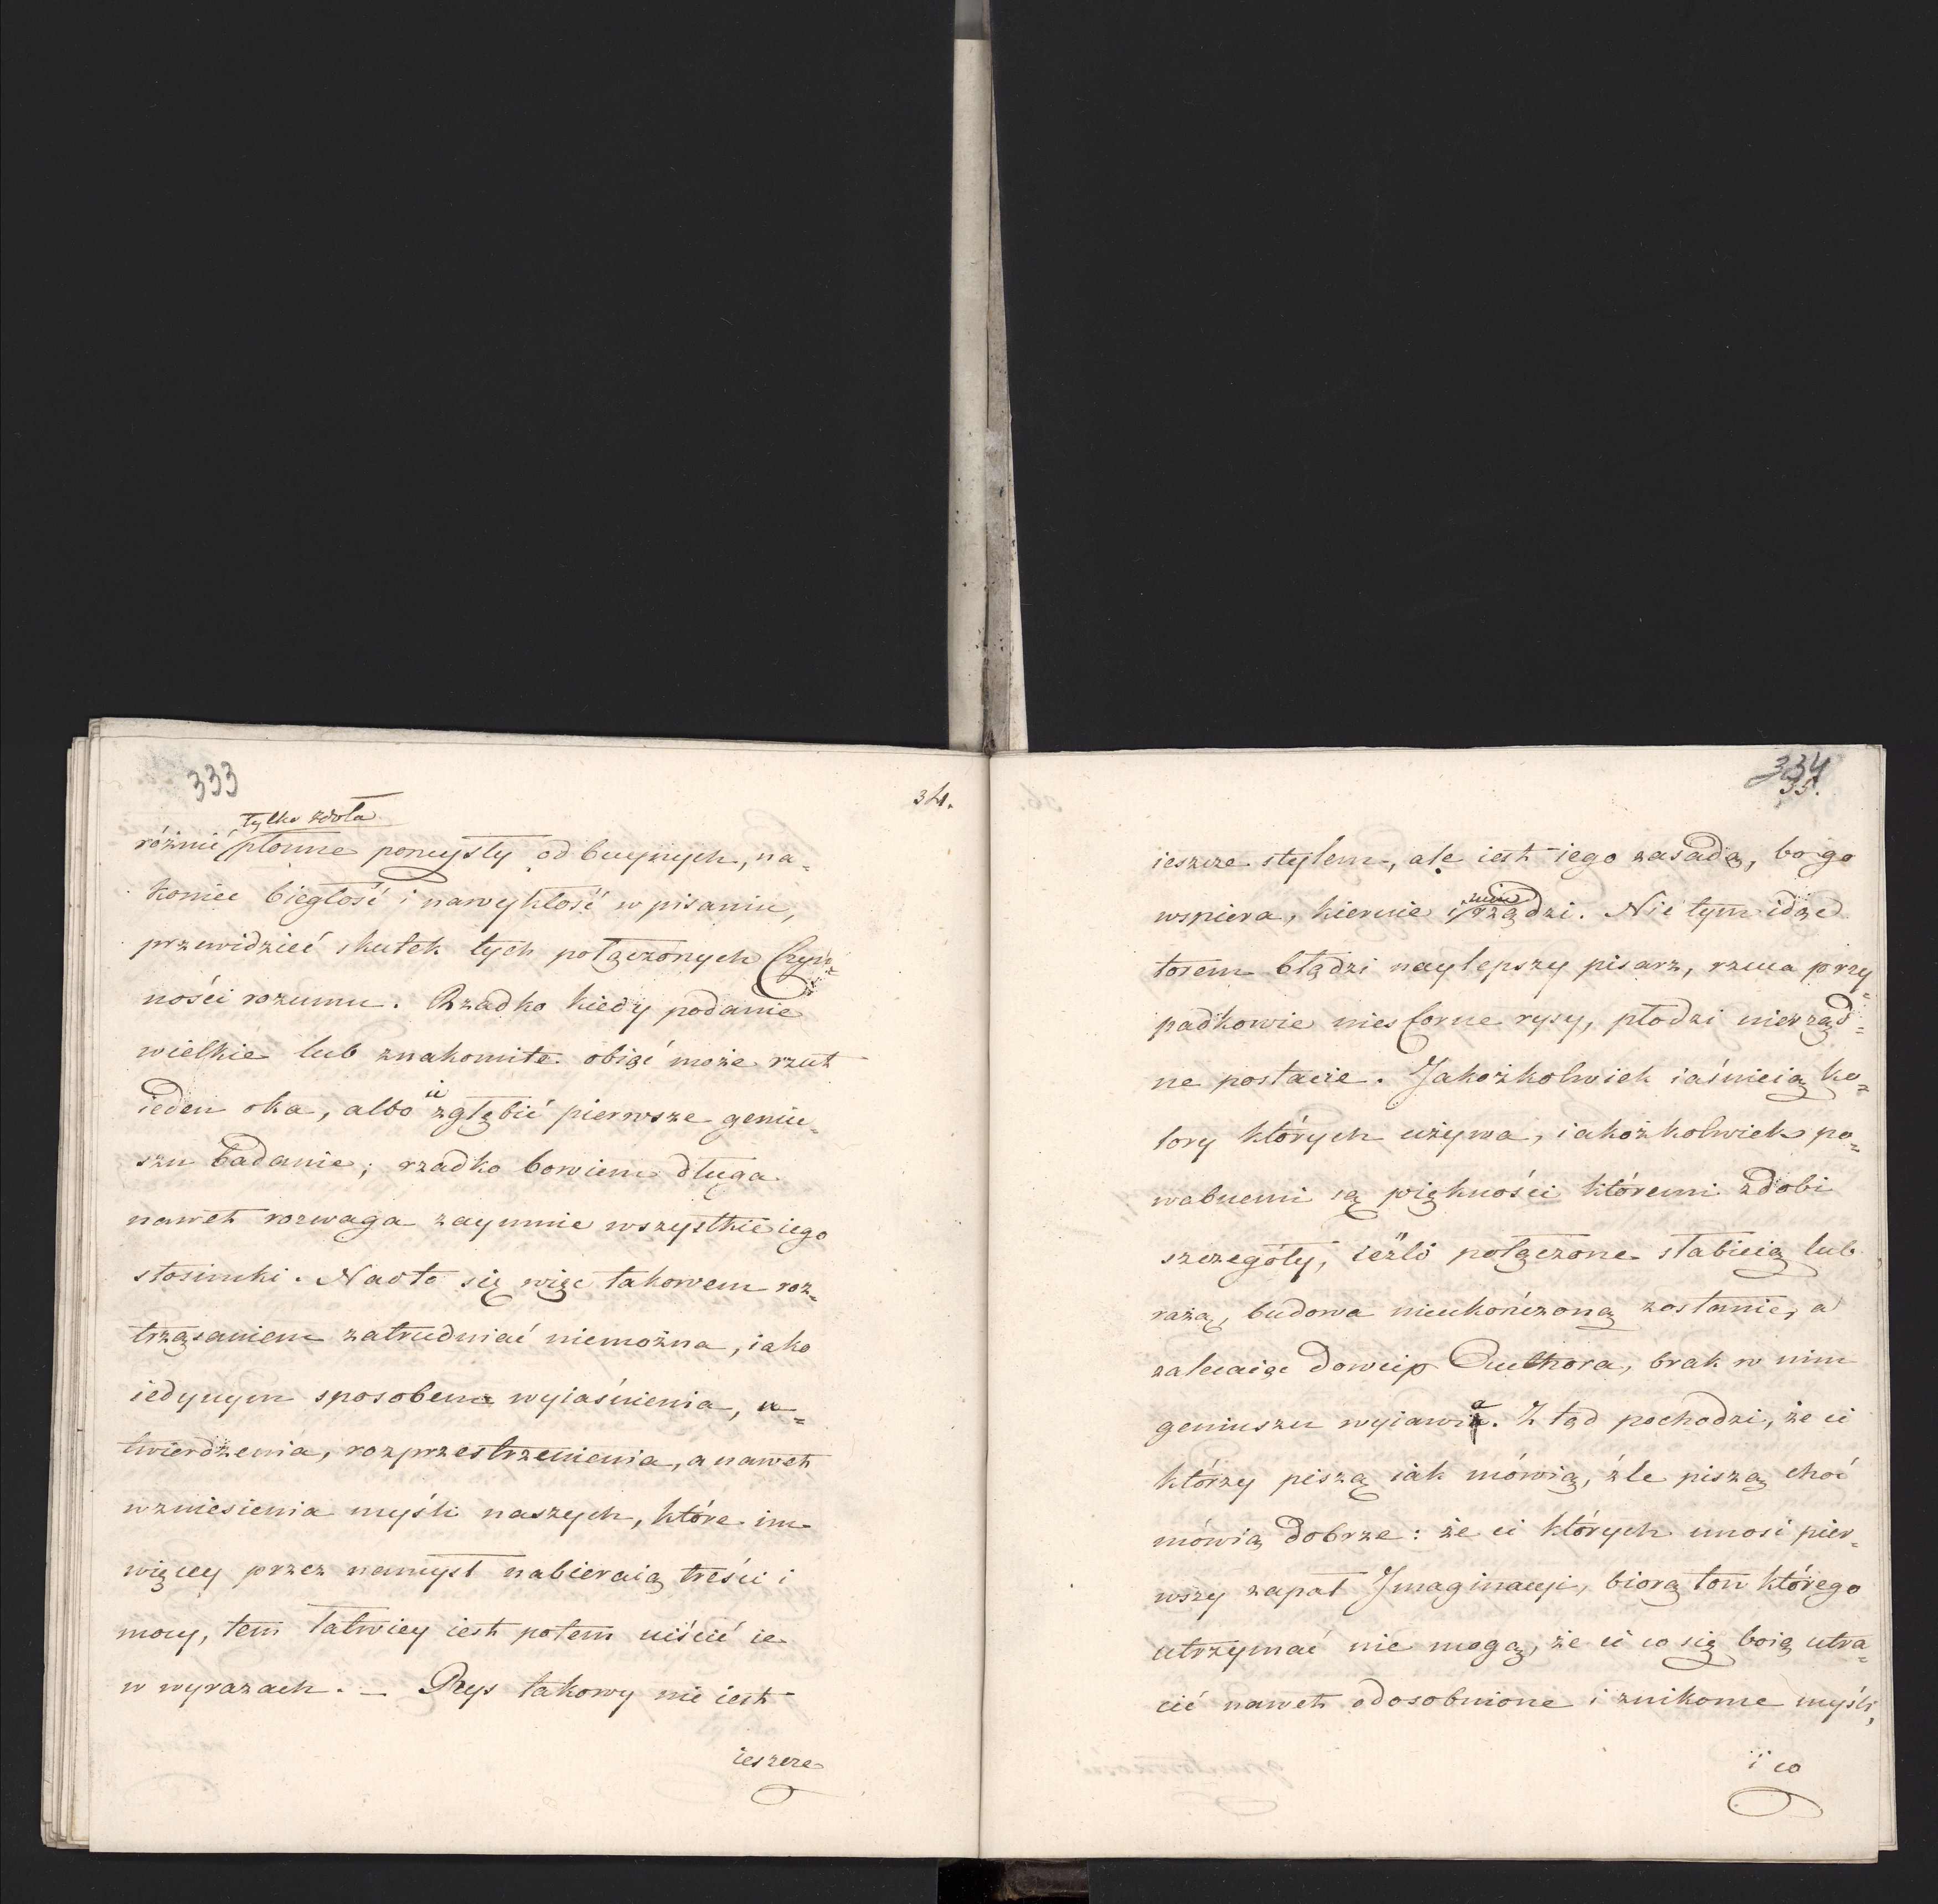 333
34.
tylko zdoła
różnić płonne pomysły od buynych, na=
koniec biegłość i nawykłość w pisaniu,
przewidzieć skutek tych połączonych Czyn=
ności rozumu. Rzadko kiedy podanie
wielkie lub znakomite obiąć może rzut
ieden oka, albo ie zgłębić pierwsze geniu=
szu badanie; rzadko bowiem długa
nawet rozwaga zaymuie wszystkie iego
stosunki. Nadto się więc takowem roz=
trząsaniem zatrudniać niemożna, iako
iedynym sposobem wyiaśnienia, u=
twierdzenia, rozprzestrzenienia, a nawet
wzniesienia myśli naszych, które im
więcey przez namysł nabieraią treści i
mocy, tem łatwiey iest potem uiścić ie
w wyrazach. — Rys takowy nie iest
ieszcze
334
35.
ieszcze stylem, ale iest iego zasadą, bo go
wspiera, kieruie i nim rządzi. Nie tym idąc
torem błądzi naylepszy pisarz, rzuca przy=
padkowie niesforne rysy, płodzi nierząd=
ne postacie. Jakożkolwiek iaśnieią ko=
lory których używa, iakożkolwiek po=
wabnemi są piękności któremi zdobi
szczegóły, ieżli połączone słabieią lub
rażą, budowa nieukończoną zostanie, a
zalecaiąc dowcip Authora, brak w nim
geniuszu wyiawia. Ztąd pochodzi, że ci
którzy piszą iak mówią, źle piszą choć
mówią dobrze: że ci których unosi pier=
wszy zapał Jmaginacyi, biorą ton którego
utrzymać nie mogą, że ci co się boią utra=
cić nawet odosobnione i znikome myśli,
i co